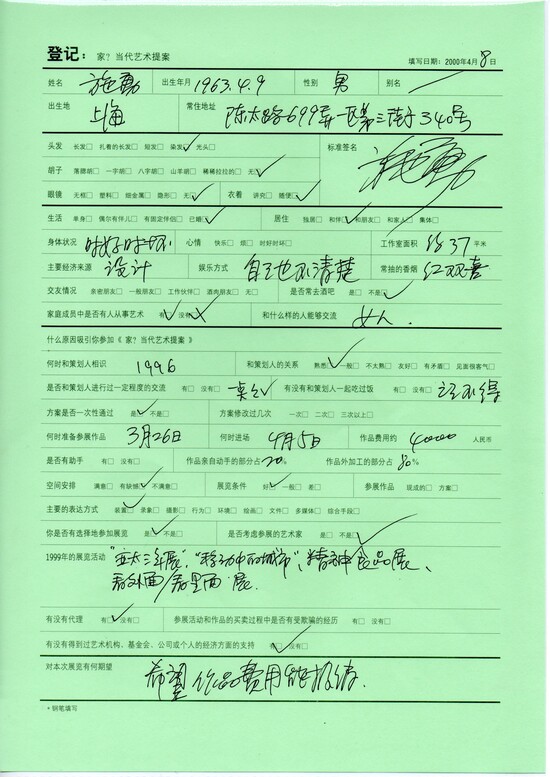 登记： 家？当代艺术提案 填写日期：2000年4月8日
姓名 施勇 出生年月 1963.4.9 性别 男 别名
出生地 上海 常住地址 陈太路699弄一区第三街子340号
头发 长发□ 扎着的长发□ 短发□ 染发□✓ 光头□ 标准签名 施勇
胡子 落腮胡□ 一字胡□ 八字胡□ 山羊胡□ 稀稀拉拉的□ 无□✓
眼镜 无框□ 塑料□ 细金属□ 隐形□ 无□✓ 衣着 讲究□ 随便□✓
生活 单身□ 偶尔有伴儿□ 有固定伴侣□ 已婚□✓ 居住 独居□ 和伴□✓ 和朋友□ 和家人□ 集体□
身体状况 时好时坏 心情 快乐□ 烦□ 时好时坏□ 工作室面积 约37 平米
主要经济来源 设计 娱乐方式 自己也不清楚 常抽的香烟 红双喜
交友情况 亲密朋友□ 一般朋友□ 工作伙伴□ 酒肉朋友□ 无□ 是否常去酒吧 是□ 不是□✓
家庭成员中是否有人从事艺术 有□✓ 没有□ 和什么样的人能够交流 女人.
什么原因吸引你参加《 家？当代艺术提案 》
何时和策划人相识 1996 和策划人的关系 熟悉□✓ 一般□ 不太熟□ 友好□ 有矛盾□ 见面很客气□
是否和策划人进行过一定程度的交流 有□ 没有□ 有没有和策划人一起吃过饭 有□ 没有□ 记不得
方案是否一次性通过 是□✓ 不是□ 方案修改过几次 一次□ 二次□ 三次以上□
何时准备参展作品 3月26日 何时进场 4月5日 作品费用约 40000 人民币
是否有助手 有□ 没有□ 作品亲自动手的部分占 20% 作品外加工的部分占 80%
空间安排 满意□ 有缺憾□✓ 不满意□ 展览条件 好□✓ 一般□ 差□ 参展作品 现成的□ 方案□
主要的表达方式 装置□✓ 录象□ 摄影□ 行为□ 环境□ 绘画□ 文件□ 多媒体□ 综合手段□
你是否有选择地参加展览 是□✓ 不是□ 是否考虑参展的艺术家 是□ 不是□✓
1999年的展览活动 “亚太三年展”、“移动中的城市”、精神食品展、
食外面/食里面 展.
有没有代理 有□✓ 没有□ 参展活动和作品的买卖过程中是否有受欺骗的经历 有□ 没有□
有没有得到过艺术机构、基金会、公司或个人的经济方面的支持 有□✓ 没有□
对本次展览有何期望 希望作品费用能报销.
* 钢笔填写